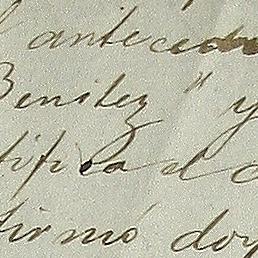 antecede
Benitez" y
tificad
firmó doy